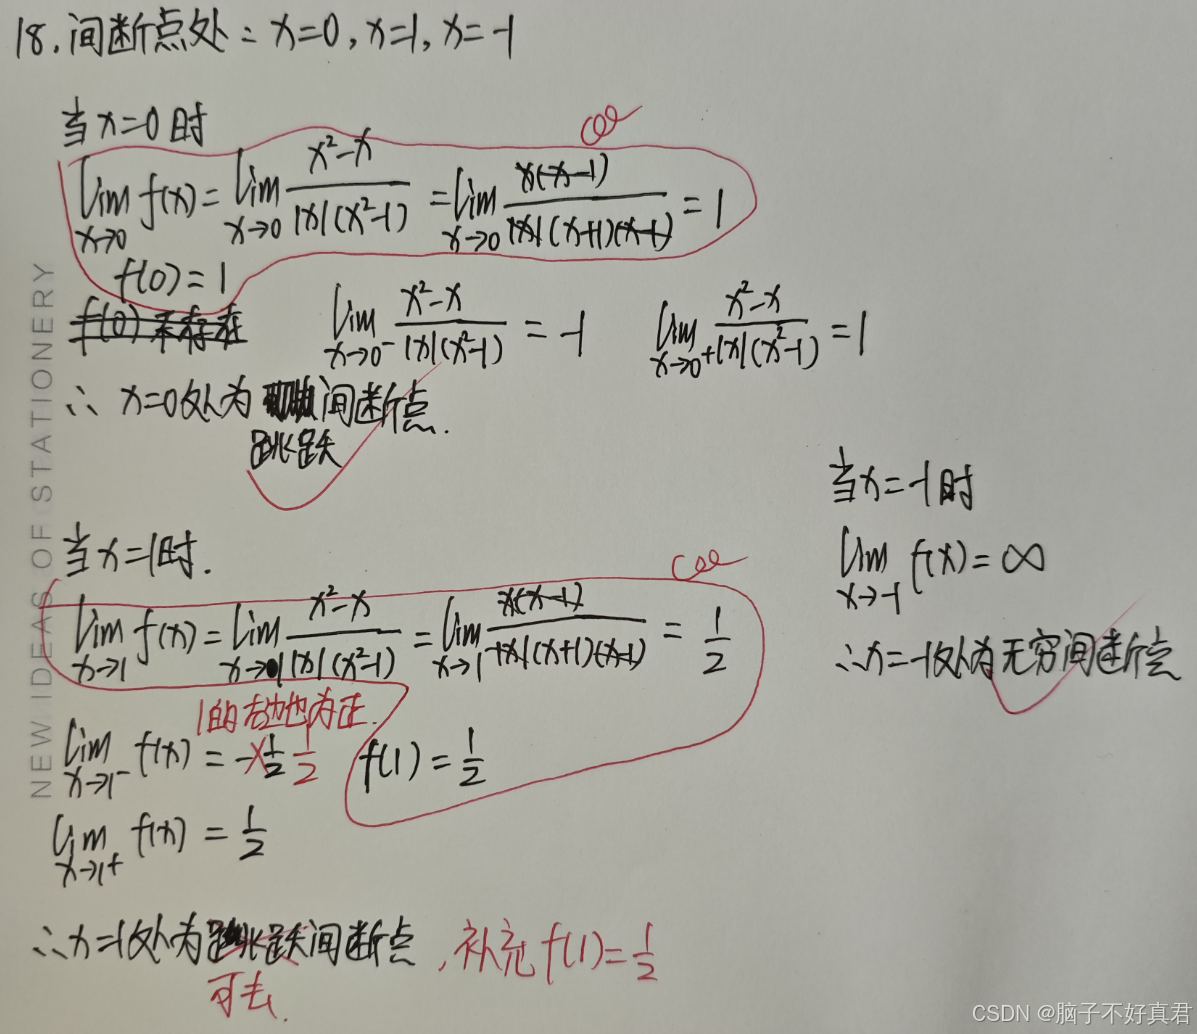 18.间断点处:x=0,x=1,x=-1
当x=0时
lim x→0 f(x)=lim x→0 (x²-x)/(|x|(x²-1))=lim x→0 x(x-1)/(|x|(x+1)(x-1))=1
f(0)=1
f(0)不存在
lim x→0⁻ (x²-x)/(|x|(x²-1))=-1
lim x→0⁺ (x²-x)/(|x|(x²-1))=1
∴ x=0处为间断点.
跳跃
当x=1时.
lim x→1 f(x)=lim x→1 (x²-x)/(|x|(x²-1))=lim x→1 x(x-1)/(|x|(x+1)(x-1))=1/2
1的左边也为正.
lim x→1⁻ f(x)=-1/2 1/2
f(1)=1/2
lim x→1⁺ f(x)=1/2
∴x=1处为跳跃间断点,补充f(1)=1/2
可去.
当x=-1时
lim x→-1 f(x)=∞
∴x=-1处为无穷间断点
NEW IDEAS OF STATIONERY
CSDN @脑子不好真君